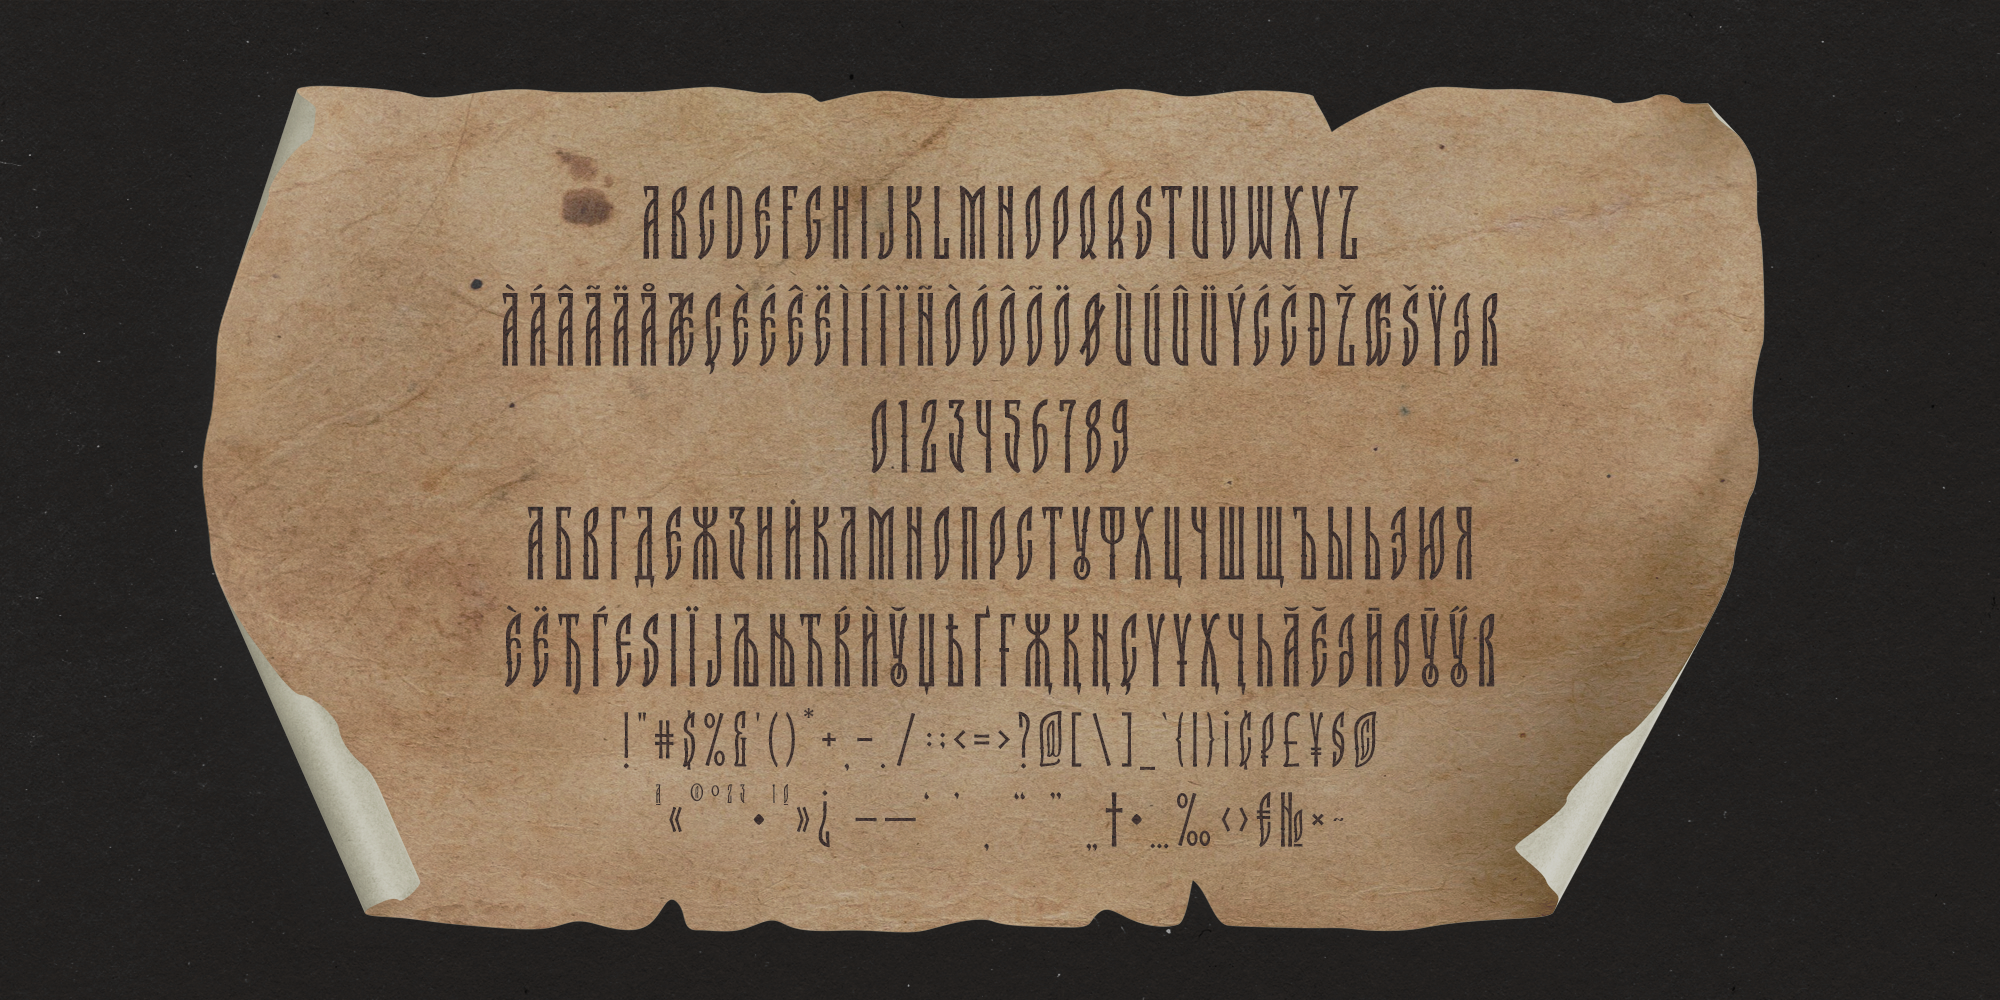 ABCDEFGHIJKLMNOPQRSTUVWXYZ
ÀÁÂÃÄÅÆÇÈÉÊËÌÍÎÏÑÒÓÔÕÖØÙÚÛÜÝĆČĐŽŒŠŸƏẞ
0123456789
АБВГДЕЖЗИЙКЛМНОПРСТУФХЦЧШЩЪЫЬЭЮЯ
ЀЁЂЃЄЅІЇЈЉЊЋЌЍЎЏѢҐҒЖҚҢҪҮҰҲҶҺӐӖӘӢӨӮӲ
!"#$%&'()*+,-./:;<=>?@[\]_`{|}¡¢₽£¥$©
ª«®°23•1º»¿–—‘’‚“”„†•…‰‹›€№×~